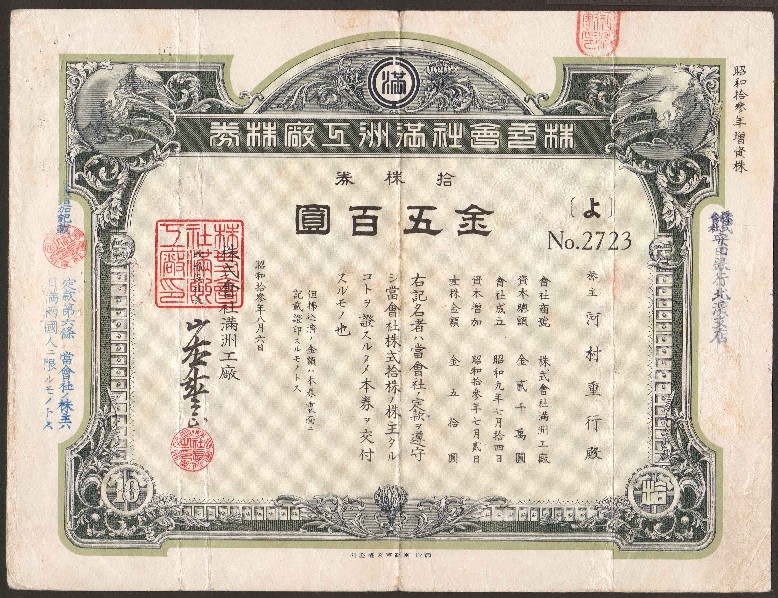 滿
株式會社滿洲工廠株券
拾株券
金五百圓
(よ)
No.2723
昭和拾參年增資株
株主 河村重行殿
會社商號 株式會社滿洲工廠
資本總額 金貳千萬圓
會社成立 昭和九年七月十四日
資本增加 昭和拾參年七月貳日
壹株金額 金五拾圓
右記名者ハ當會社ノ定款ヲ遵守
シ當會社株式拾株ノ株主タル
コトヲ證スルタメ本券ヲ交付
スルモノ也
但拂込濟ノ金額ハ本券裏面ニ
記載證印スルモノトス
昭和拾參年八月六日
株式會社滿洲工廠
株式會社滿洲工廠印
追記載
定款第六條 當會社ノ株主ハ
日滿兩國人ニ限ルモノトス
株式會社安田銀行北濱支店
10
拾